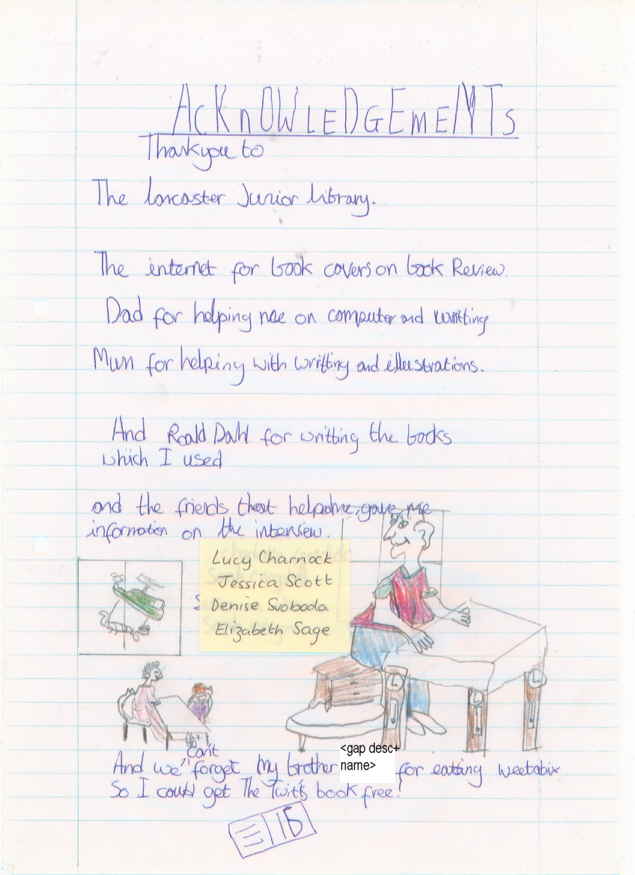 AcKnOWLEDGEmeNTs
Thankyou to
The lancaster Junior library.
The internet for book covers on book Review.
Dad for helping me on computer and writting
Mum for helping with writting and illustrations.
And Roald Dahl for writting the books
which I used
and the friends that helped me, gave me
information on the interview.
Lucy Charnock
Jessica Scott
Denise Svoboda
Elizabeth Sage
can't
And we forget my brother <gap desc+ name> for eating weetabix
So I could get The Twits book free!
15